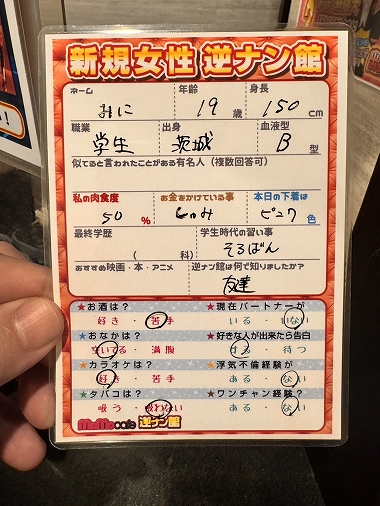 新規女性 逆ナン館
ネーム 年齢 身長
みに 19歳 150cm
職業 出身 血液型
学生 茨城 B型
似てると言われたことがある有名人(複数回答可)
私の肉食度 お金をかけている事 本日の下着は
50% ピンク色
最終学歴 学生時代の習い事
( 科) そろばん
おすすめ映画・本・アニメ 逆ナン館は何で知りましたか?
友達
★お酒は? ★現在パートナーが
好き・苦手 いる・いない
★おなかは? ★好きな人が出来たら告白
空いてる・満腹 する・待つ
★カラオケは? ★浮気不倫経験が
好き・苦手 ある・ない
★タバコは? ★ワンチャン経験?
吸う・吸わない ある・ない
MoMo cafe 逆ナン館